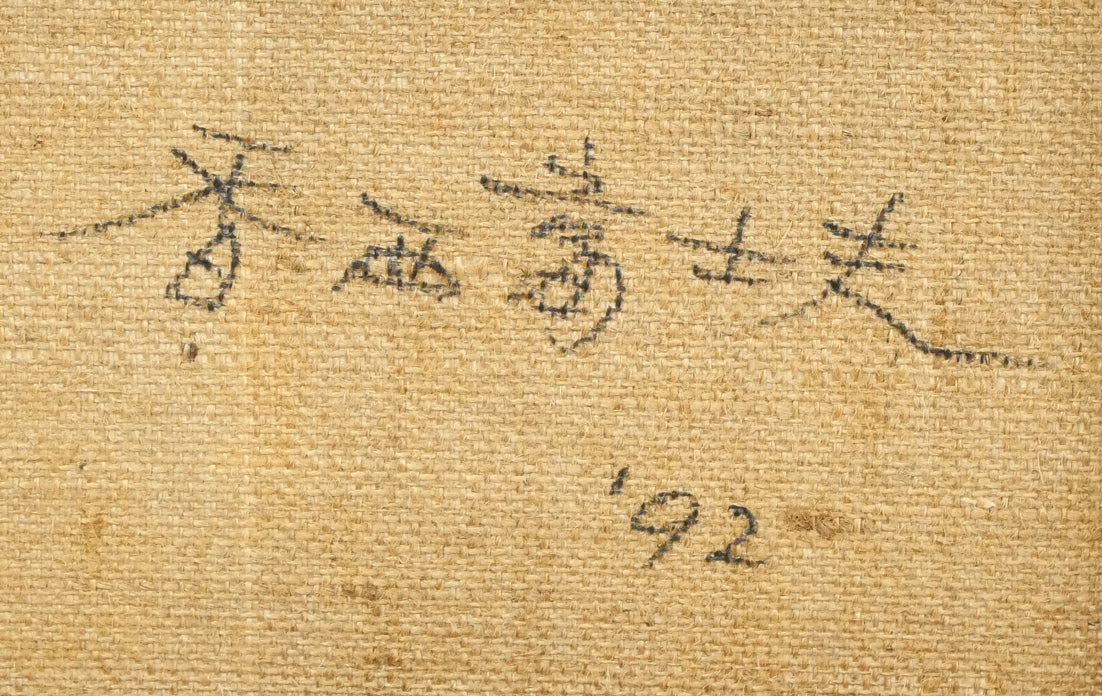 香西富士夫
'92